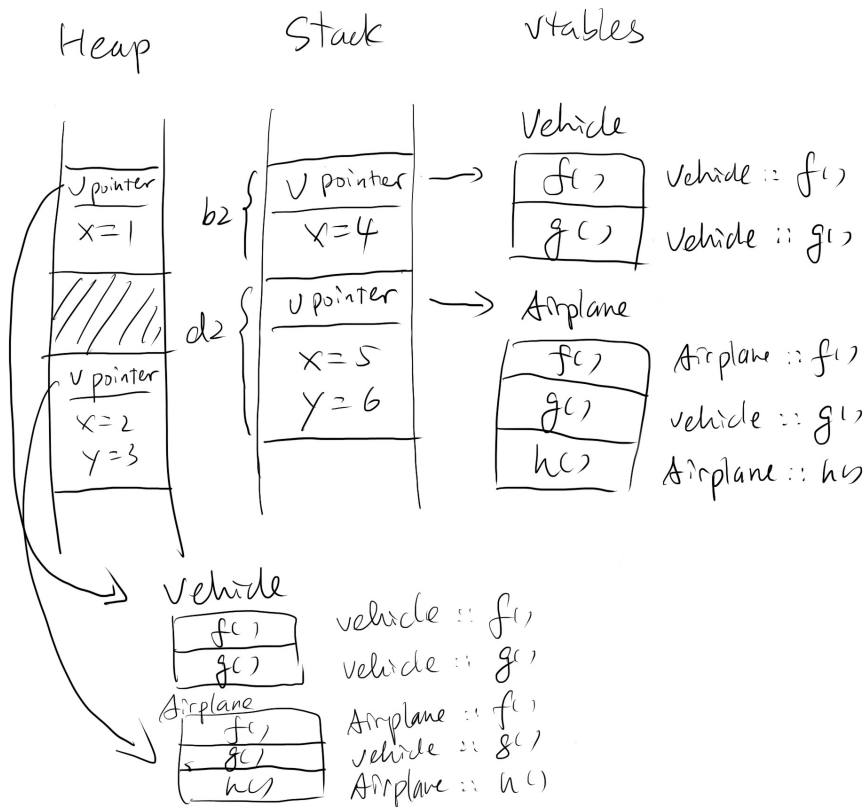 Heap
Stack
vtables
v pointer
x=1
v pointer
x=2
y=3
b2
v pointer
x=4
d2
v pointer
x=5
y=6
Vehicle
f() Vehicle :: f()
g() Vehicle :: g()
Airplane
f() Airplane :: f()
g() vehicle :: g()
h() Airplane :: h()
Vehicle
f() vehicle :: f()
g() vehicle :: g()
Airplane
f() Airplane :: f()
g() vehicle :: g()
h() Airplane :: h()